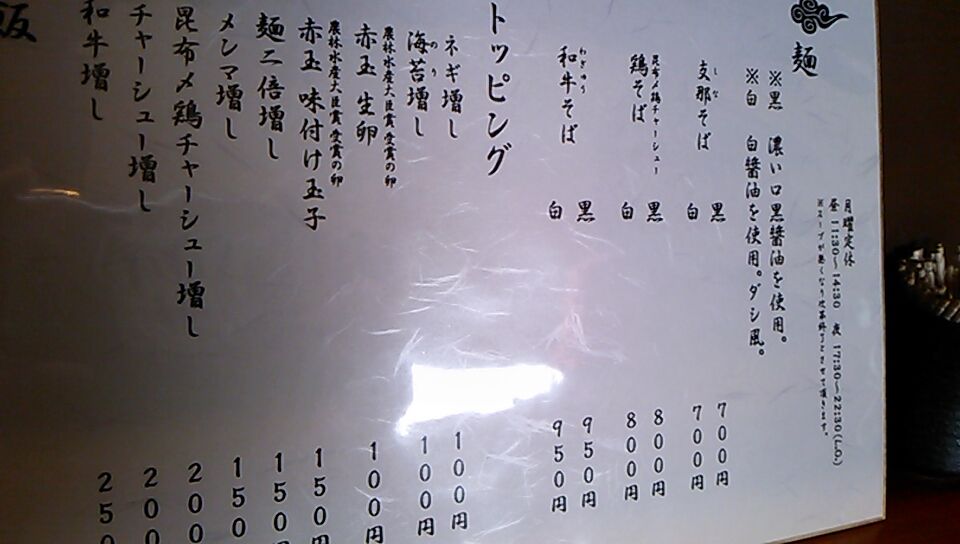 月曜定休
昼 11:30〜14:30 夜 17:30〜22:30(L.O.)
※スープが無くなり次第終了とさせて頂きます。
麺
※黒 濃い口黒醤油を使用。
※白 白醤油を使用。ダシ風。
支那そば 黒 700円
しな
白 700円
昆布〆鶏チャーシュー
鶏そば 黒 800円
白 800円
わぎゅう
和牛そば 黒 950円
白 950円
トッピング
ネギ増し 100円
海苔増し 100円
のり
農林水産大臣賞受賞の卵
赤玉 生卵 100円
農林水産大臣賞受賞の卵
赤玉 味付け玉子 150円
麺二倍増し 150円
メンマ増し 150
昆布〆鶏チャーシュー増し 200
チャーシュー増し 200
和牛増し 250
飯